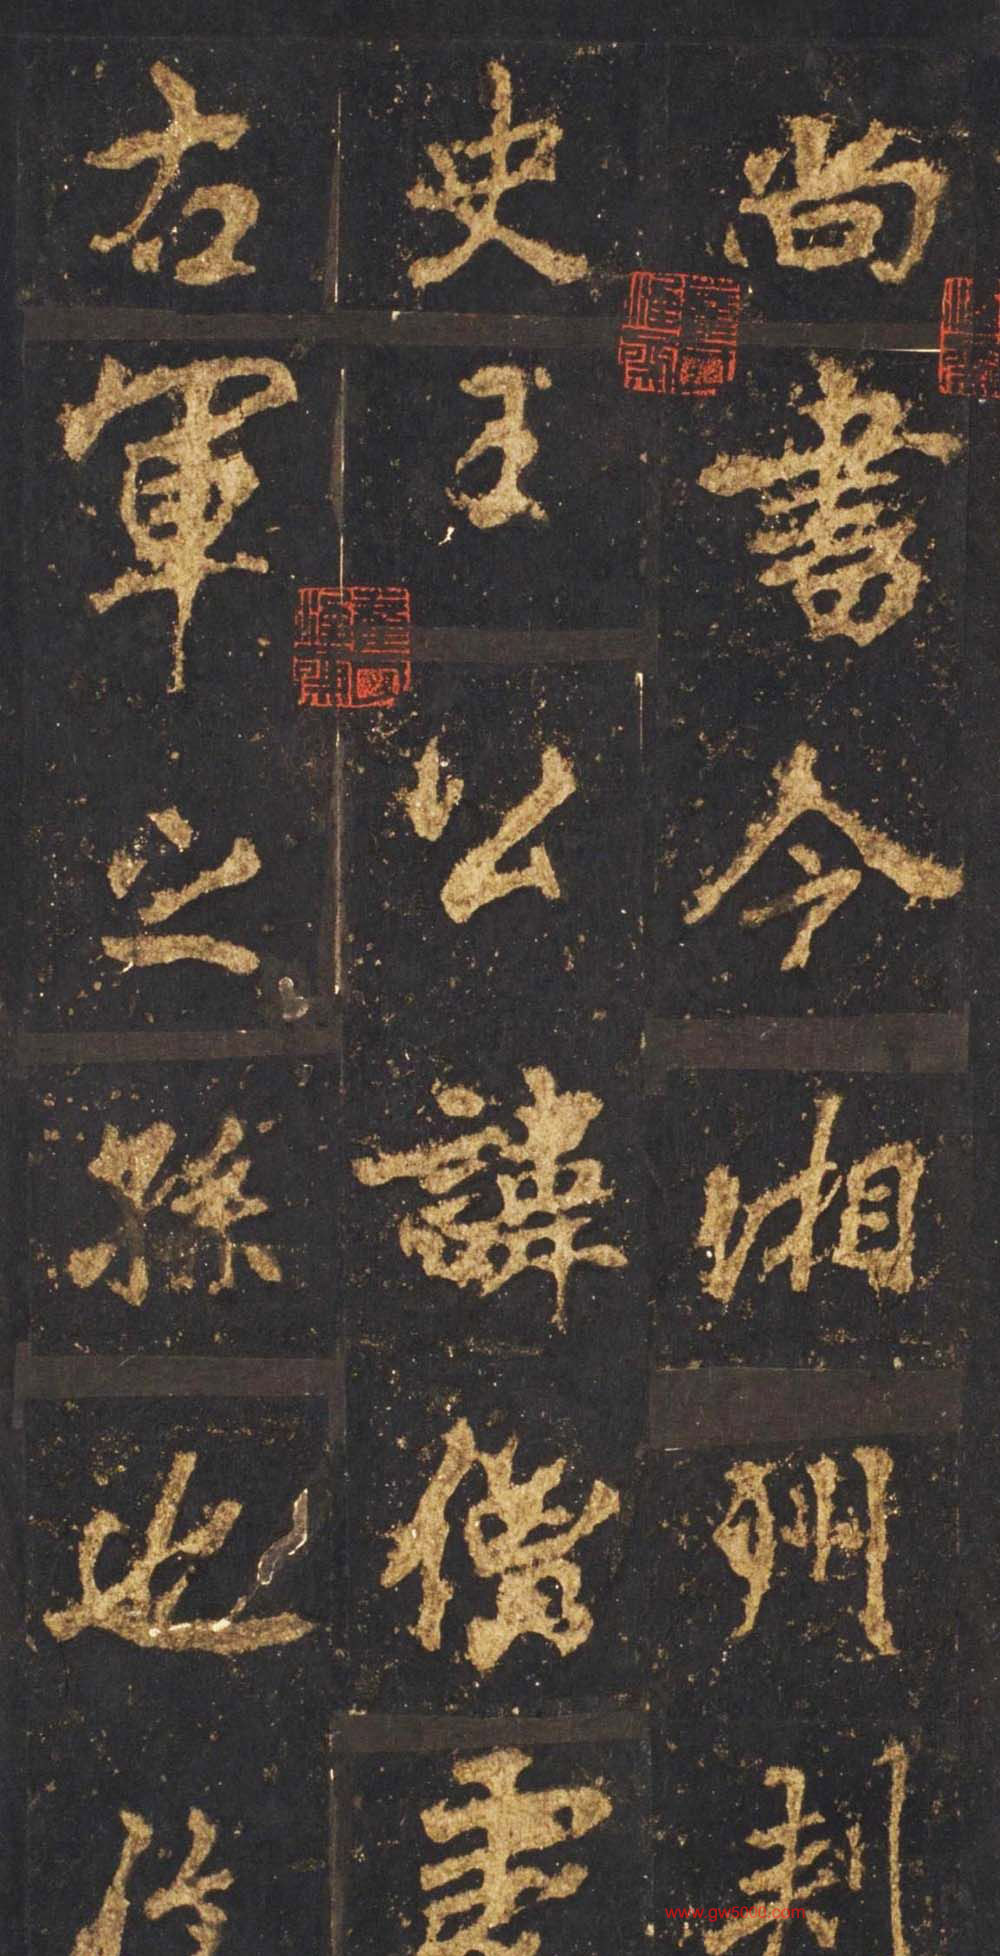 尚書令湘州刺
史王公諱僧虔
右軍之孫也
www.gw5000.com